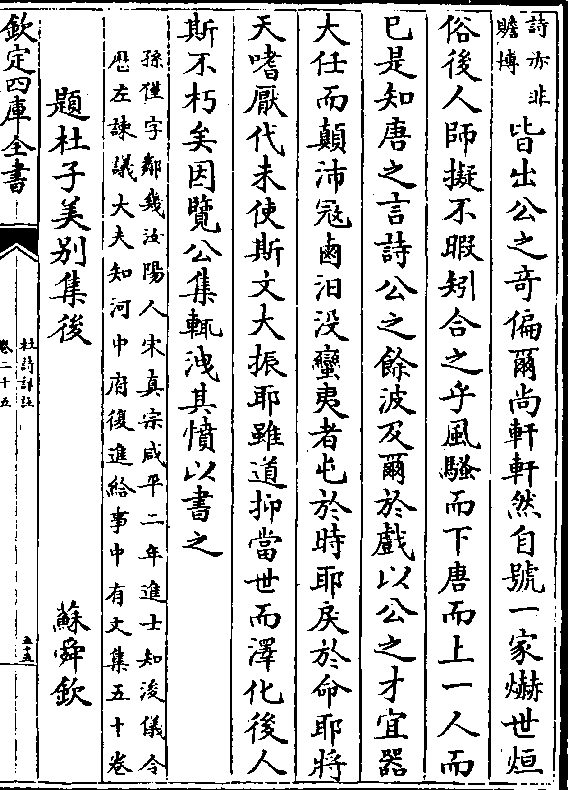 詩亦非
贍博
皆出公之竒偏爾尚軒軒然自號一家爀世烜
俗後人師擬不暇矧合之乎風騷而下唐而上一人而
巳是知唐之言詩公之餘波及爾於戲以公之才宜器
大任而顛沛冦鹵汨没蠻夷者屯於時耶戾於命耶將
天嗜厭代未使斯文大振耶雖道抑當世而澤化後人
斯不朽矣因覽公集輒洩其憤以書之
孫僅字鄰幾汝陽人宋真宗咸平二年進士知浚儀令
歴左諫議大夫知河中府復進給事中有文集五十卷
題杜子美别集後
蘇舜欽
欽定四庫全書
杜詩詳註
卷二十五
五十五